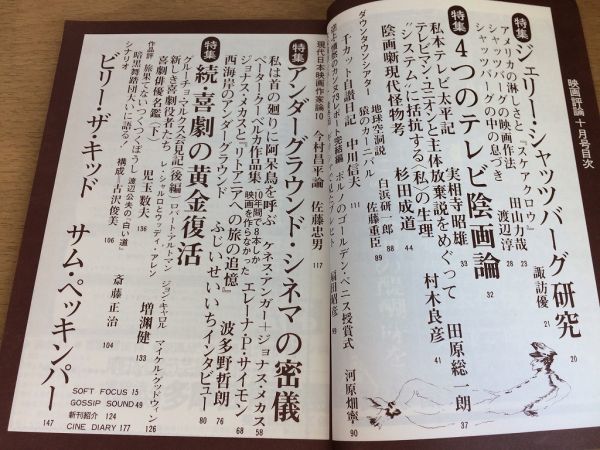 映画評論 十月号目次
特集 ジェリー・シャッツバーグ研究 20
アメリカの淋しさと『スケアクロウ』 諏訪優 21
シャッツバーグの映画作法 田山力哉 23
シャッツバーグの中の息づき 渡辺淳 28
特集 4つのテレビ陰画論 32
私本テレビ太平記 実相寺昭雄 33
テレビマン・ユニオンと主体放棄説をめぐって 田原総一朗 37
"システム"に抵抗する〈私〉の生理 村木良彦 41
陰画噺現代怪物考 杉田成道 44
地球空洞説 白浜研一郎 88
ダウンタウンシアター 猿のカーニバル 佐藤重臣 89
千カット自譜日記 中川信夫 111
ポルノのゴールデン・ベニス授賞式 河原畑寧 90
現代日本映画作家論10 今村昌平論 佐藤忠男 117
特集 アンダーグラウンド・シネマの密儀
私は首の廻りに阿呆鳥を呼ぶ ケネス・アンガー+ジョナス・メカス 58
ペーター・クーベルカ作品集 10年間で8本しか映画を作らなかった エレーナ・P・サイモン 68
ジョナス・メカスと『リトアニアへの旅の追憶』 波多野哲朗 76
西海岸のアンダーグラウンド ふじいせいいちインタビュー 80
特集 続・喜劇の黄金復活
グルーチョ・マルクス会見記(後編) ロバート・アルトマン ジョン・キャロル マイケル・グッドウィン 126
新しき喜劇役者たち レ・シャルロとウッディ・アレン 増渕健 133
喜劇俳優名鑑(下) 児玉数夫 136
作品評 旅巣てないつくつくぼうし 渡辺公夫の『白い道』 斎藤正治 104
暗黒舞踏団大いに語る! 構成=古沢俊美 106
シナリオ
ビリー・ザ・キッド サム・ペッキンパー 147
SOFT FOCUS 15
GOSSIP SOUND 49
新刊紹介 124
CINE DIARY 177